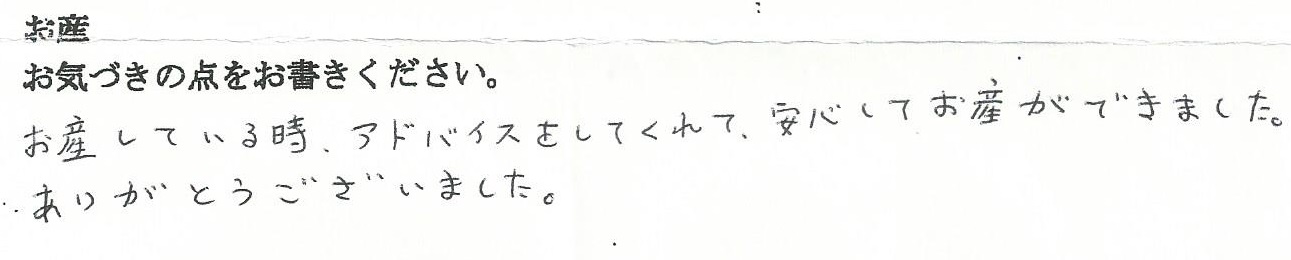 お産
お気づきの点をお書きください。
お産している時、アドバイスをしてくれて、安心してお産ができました。
ありがとうございました。